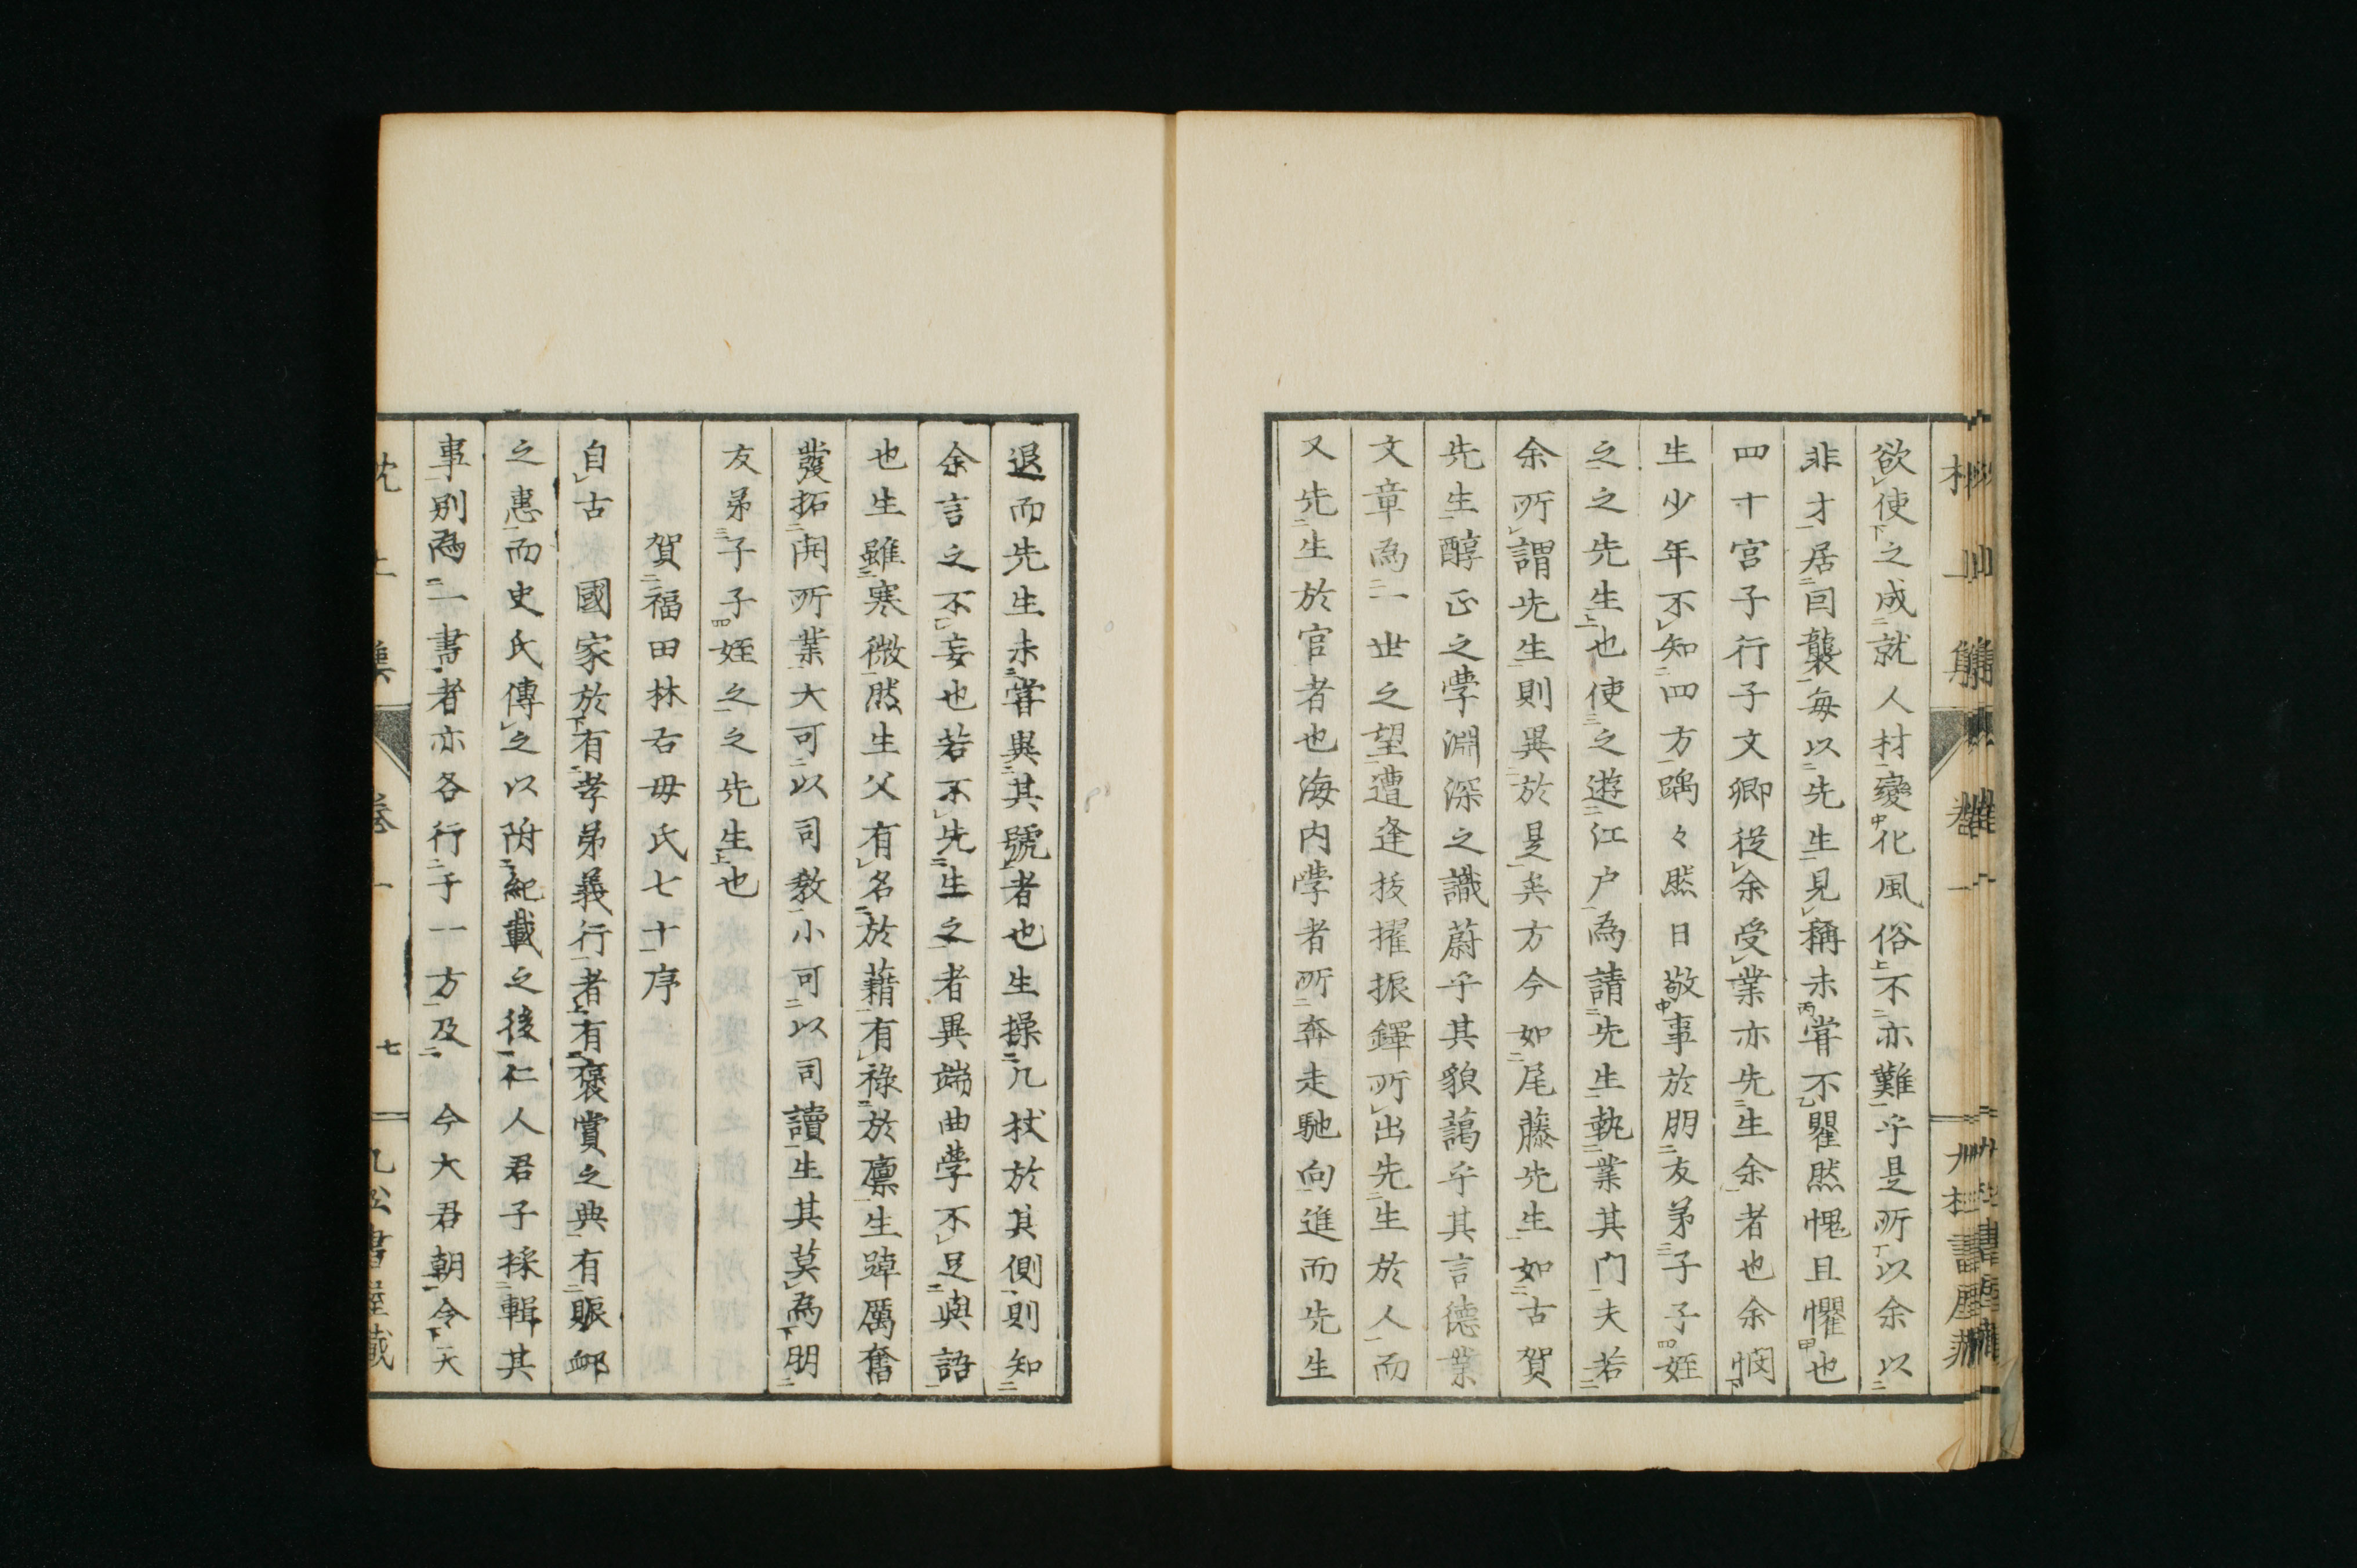 欲使之成就人材變化風俗不亦難乎是所以余以
非才居囘襲每以先生見稱未甞不瞿然愧且懼也
四十宮子行子文卿従余受業亦先生余者也余憫
生少年不知四方踽々然日敬事於朋友弟子子姪
之之先生也使之遊江户為請先生執業其門夫若
余所謂先生則異於是矣方今如尾藤先生如古賀
先生醇正之學淵深之識蔚乎其貌藹乎其言德業
文章為一世之望遭逢抜擢振鐸所出先生於人而
又先生於官者也海内學者所奔走馳向進而先生
退而先生未甞與其號者也生操几杖於其側則知
余言之不妄也若不先生之者異端曲學不足與語
也生雖寒微然生父有名於藉有祿於廪生踔厲奮
發拓開所業大可以司教小可以司讀生其莫為朋
友弟子子姪之之先生也
賀福田林右毋氏七十序
自古國家於有孝弟義行者有褒賞之典有賑䘏
之惠而史氏傳之以附紀載之後仁人君子採輯其
事別為一書者亦各行于一方及今大君朝令天
七